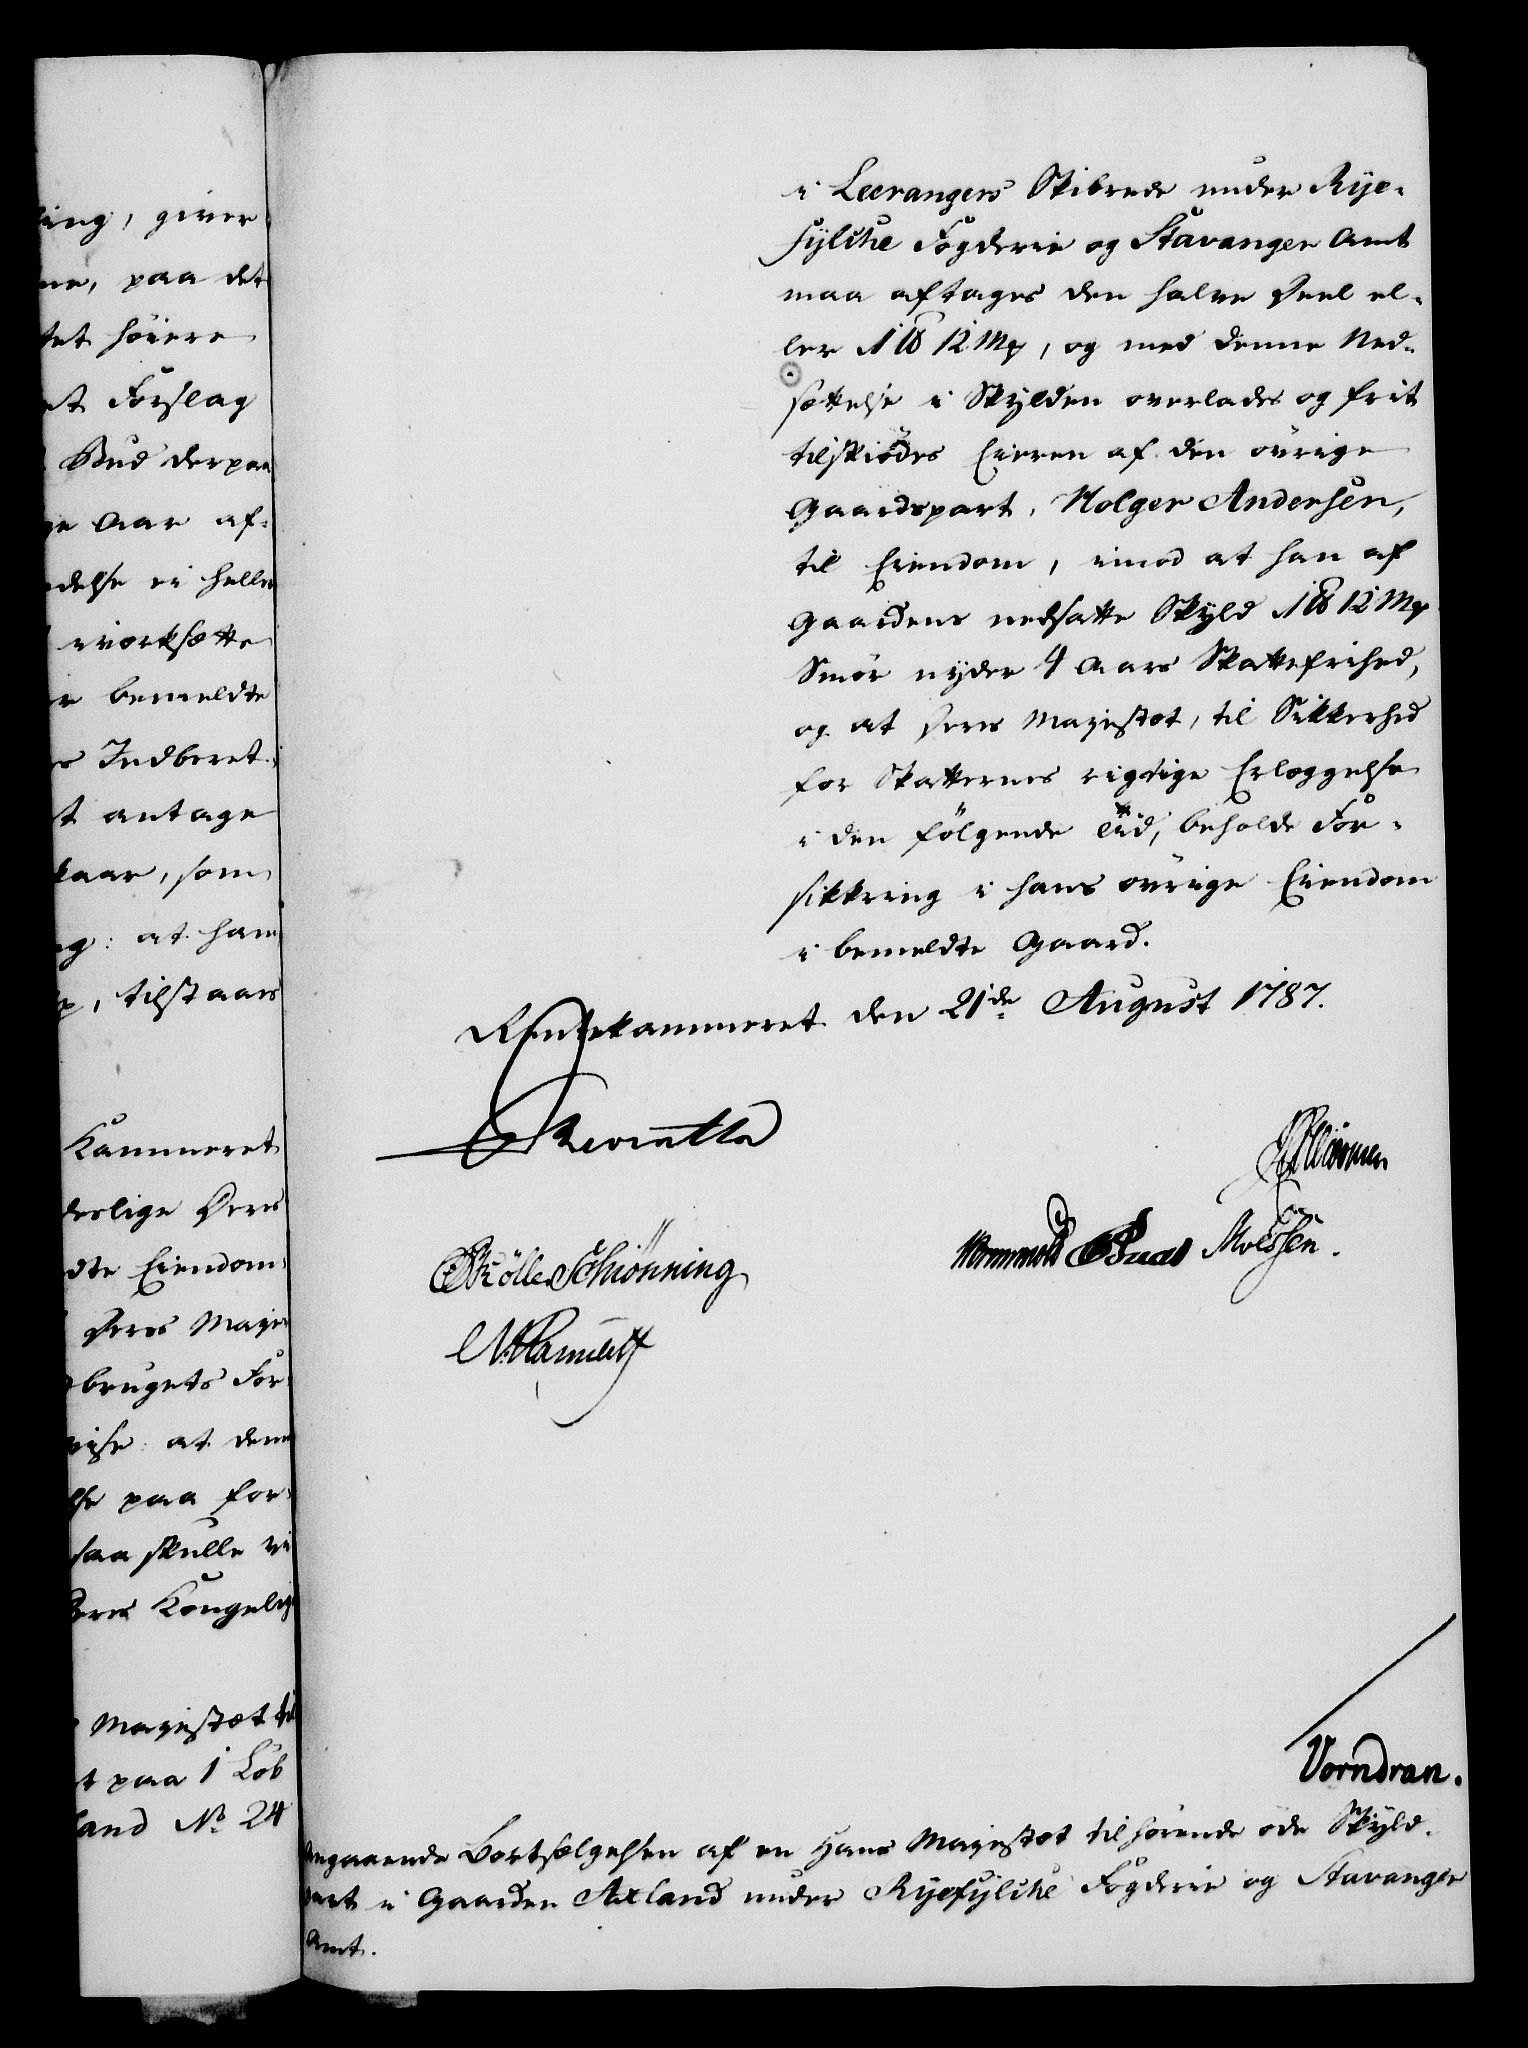 ing, giver
ne, paa det
tet höiere
et Forslag
Bud derpaa
ge Aar af-
delse ei heller
iværksætte
r bemeldte
s Indberet-
t antage
kaar, som
g: at ham
, tilstaaes
Kammeret
derlige Deres
dte Eiendom
Deres Maje-
brugets For-
vise: at den
lse paa for-
saa skulle vi
Deres Kongelig
Majestæt til
t paa 1 Løb
land No 24
i Leerangers Skibrede under Rye-
fylche Fogderie og Stavanger Amt
maa aftages den halve Deel el-
ler 1 ℔ 12 Mrk, og med denne Ned-
sættelse i Skylden overlades og frit
tilskiödes Eieren af den övrige
Gaardspart, Holger Andersen,
til Eiendom, imod at han af
Gaardens nedsatte Skyld 1 ℔ 12 Mrk
Smör nyder 4 Aars Skattefrihed,
og at Deres Majestæt, til Sikkerhed
for Skatternes rigtige Erlæggelse
i den fölgende Tiid, beholde For-
sikkring i hans övrige Eiendom
i bemeldte Gaard.
Rentekammeret den 21de August 1787.
Reventlow
Schiönning
Wormskiold
Moessen.
Vorndran.
Angaaende Bortsælgelsen af en Hans Majestæt tilhörende öde Skyld-
part i Gaarden Axland under Ryefylche Fogderie og Stavanger
Amt.